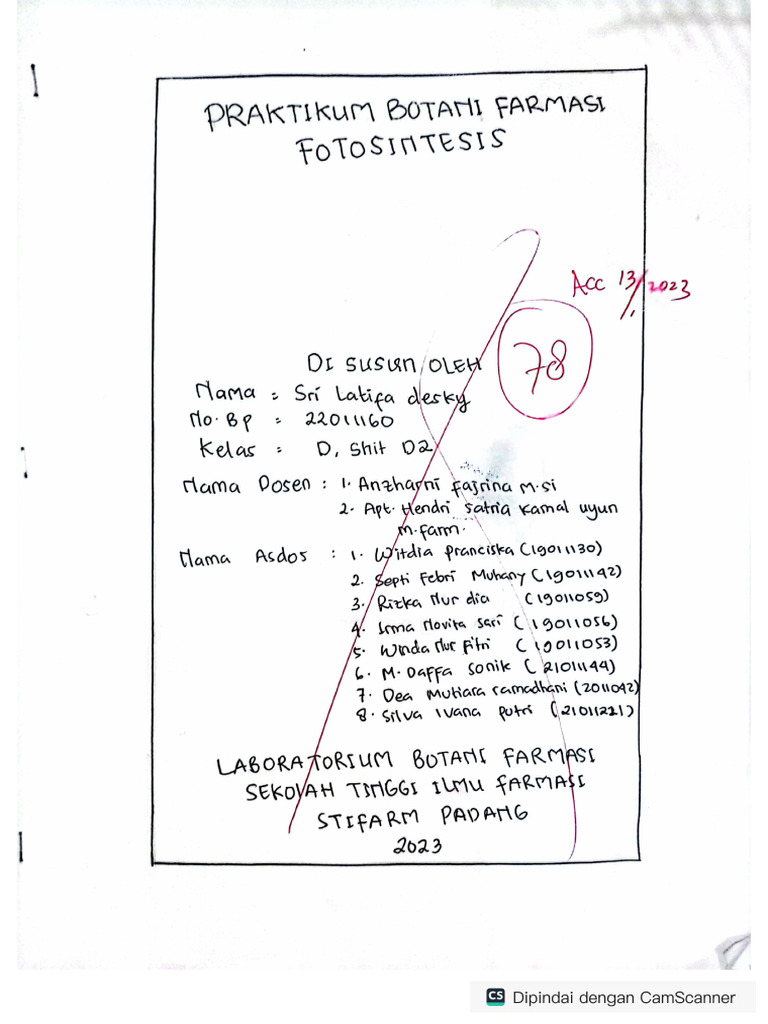 PRAKTIKUM BOTANI FARMASI
FOTOSINTESIS
Acc 13/2023
78
Di SUSUN OLEH
Nama : Sri Latifa desky
No. Bp : 22011160
Kelas : D, Shit D2
Nama Dosen : 1. Anzharni fajrina M.si
2. Apt. Hendri satria kamal uyun
M.farm.
Nama Asdos : 1. Witdia pranciska (19011130)
2. Septi Febri Muhany (19011142)
3. Rizka Nur dia (19011059)
4. Irma Novita sari (19011056)
5. Winda Nur Fitri (19011053)
6. M. Daffa Sonik (21011144)
7. Dea Mutiara ramadhani (2011042)
8. Silva Ivana putri (21011221)
LABORATORIUM BOTANI FARMASI
SEKOLAH TINGGI ILMU FARMASI
STIFARM PADANG
2023
CS Dipindai dengan CamScanner